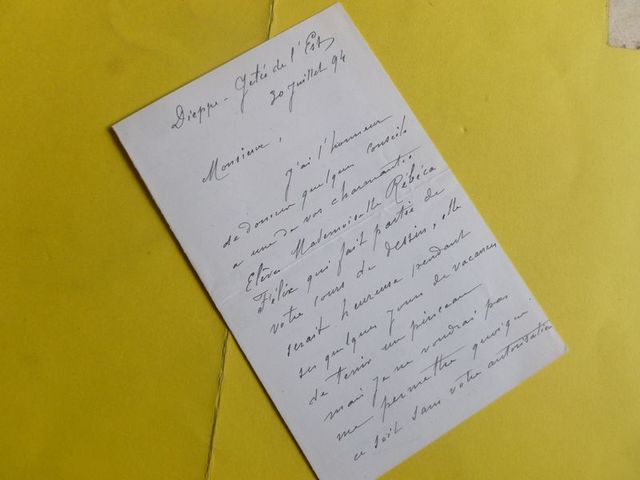 Dieppe - Jetée de l'Est
30 Juillet 94
Monsieur,
J'ai l'honneur
de donner quelques conseils
a une de vos charmantes
Elèves Mademoiselle Rébéca
Félix qui fait partie de
votre cours de dessin, elle
serait heureuse pendant
ses quelques jours de vacances
de tenir un pinceau
mais je ne voudrai pas
me permettre quoique
ce soit sans votre autorisation